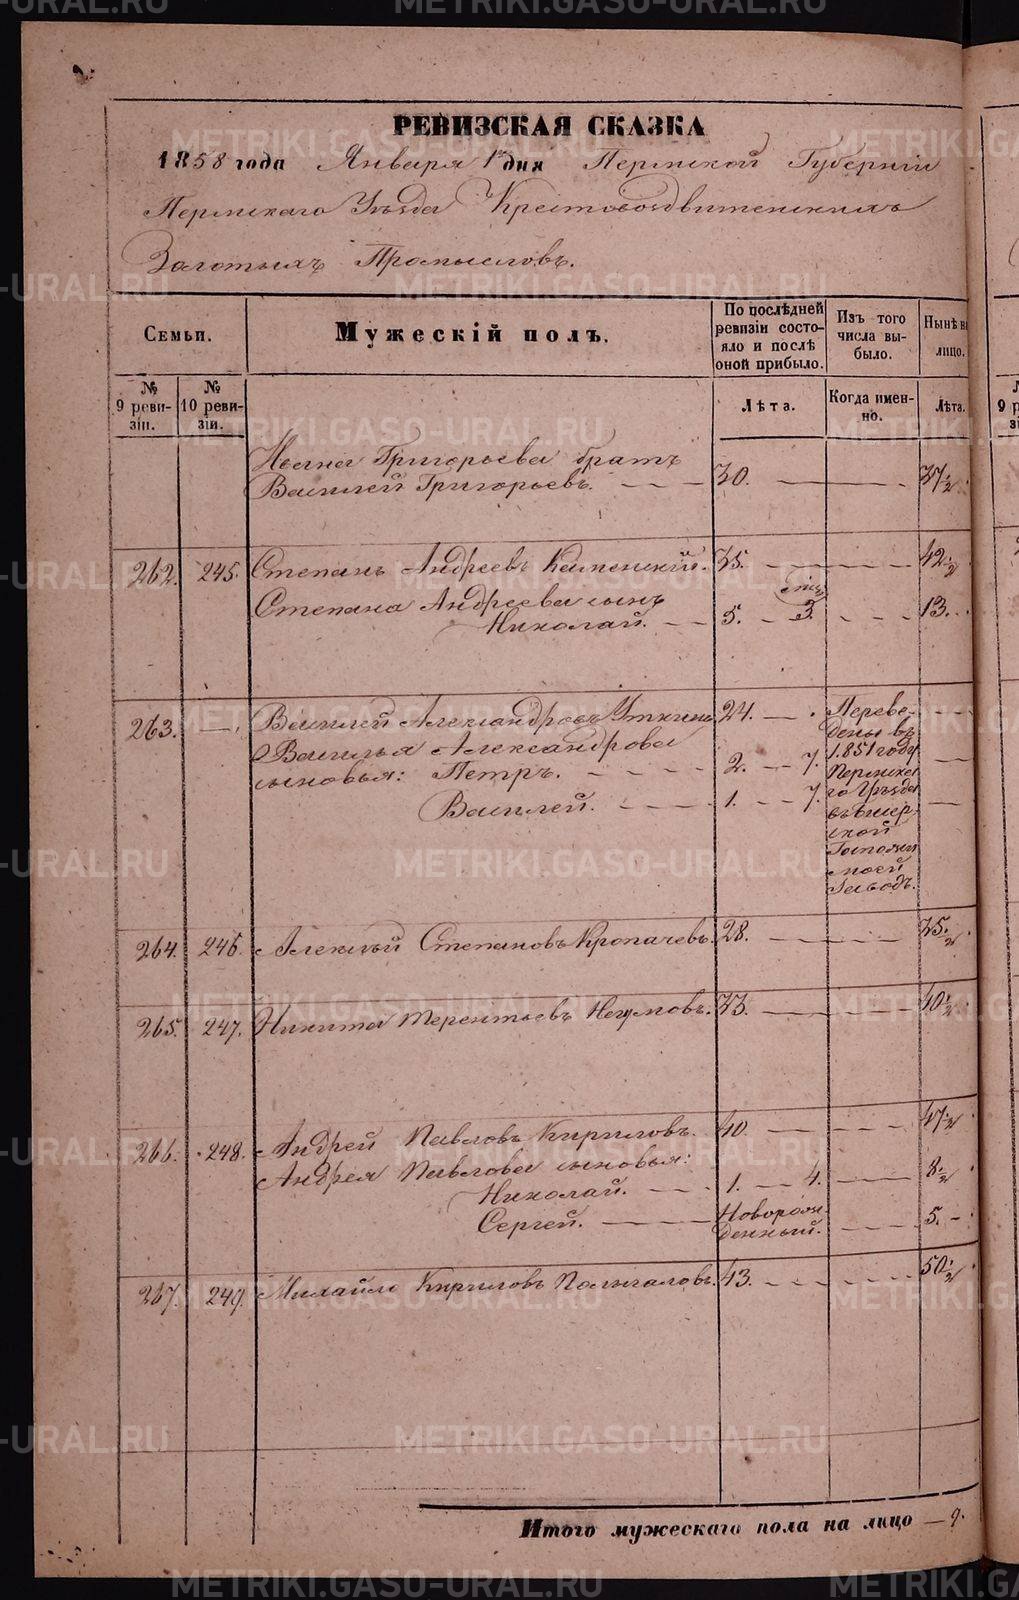 РЕВИЗСКАЯ СКАЗКА
1858 года Января 1го дня Пермской Губерніи
Пермскаго Уѣзда Крестовоздвиженскихъ
Золотыхъ Промысловъ.
Семьи.
Мужескій полъ.
По послѣдней ревизіи состояло и послѣ оной прибыло.
Изъ того числа выбыло.
Нынѣ на лицо.
№ 9 ревизіи.
№ 10 ревизіи.
Лѣта.
Когда именно.
Лѣта.
Ивана Григорьева братъ
Василей Григорьевъ. 30. 37½
262. 245. Степанъ Андреевъ Каменскій. 35. 42½
Степана Андреева сынъ
Николай. 5. 3. 13.
263. Василей Александровъ Уткинъ 24.
Василья Александрова
сыновья: Петръ. 2. 7.
Василей. 1. 7.
Переве-
дены въ
1851 году
Пермска-
го Уѣзда
въ Бисер-
ской
заводъ.
264. 246. Алексѣй Степановъ Кропачевъ. 28. 35½
265. 247. Никита Терентьевъ Наумовъ. 33. 40½
266. 248. Андрей Павловъ Кириловъ. 40. 47½
Андрея Павлова сыновья:
Николай. 1. 4. 8½
Сергей. Новорож-
денный. 5.
267. 249. Михайло Кириловъ Полыгаловъ. 43. 50½
Итого мужескаго пола на лицо 9.
METRIKI.GASO-URAL.RU